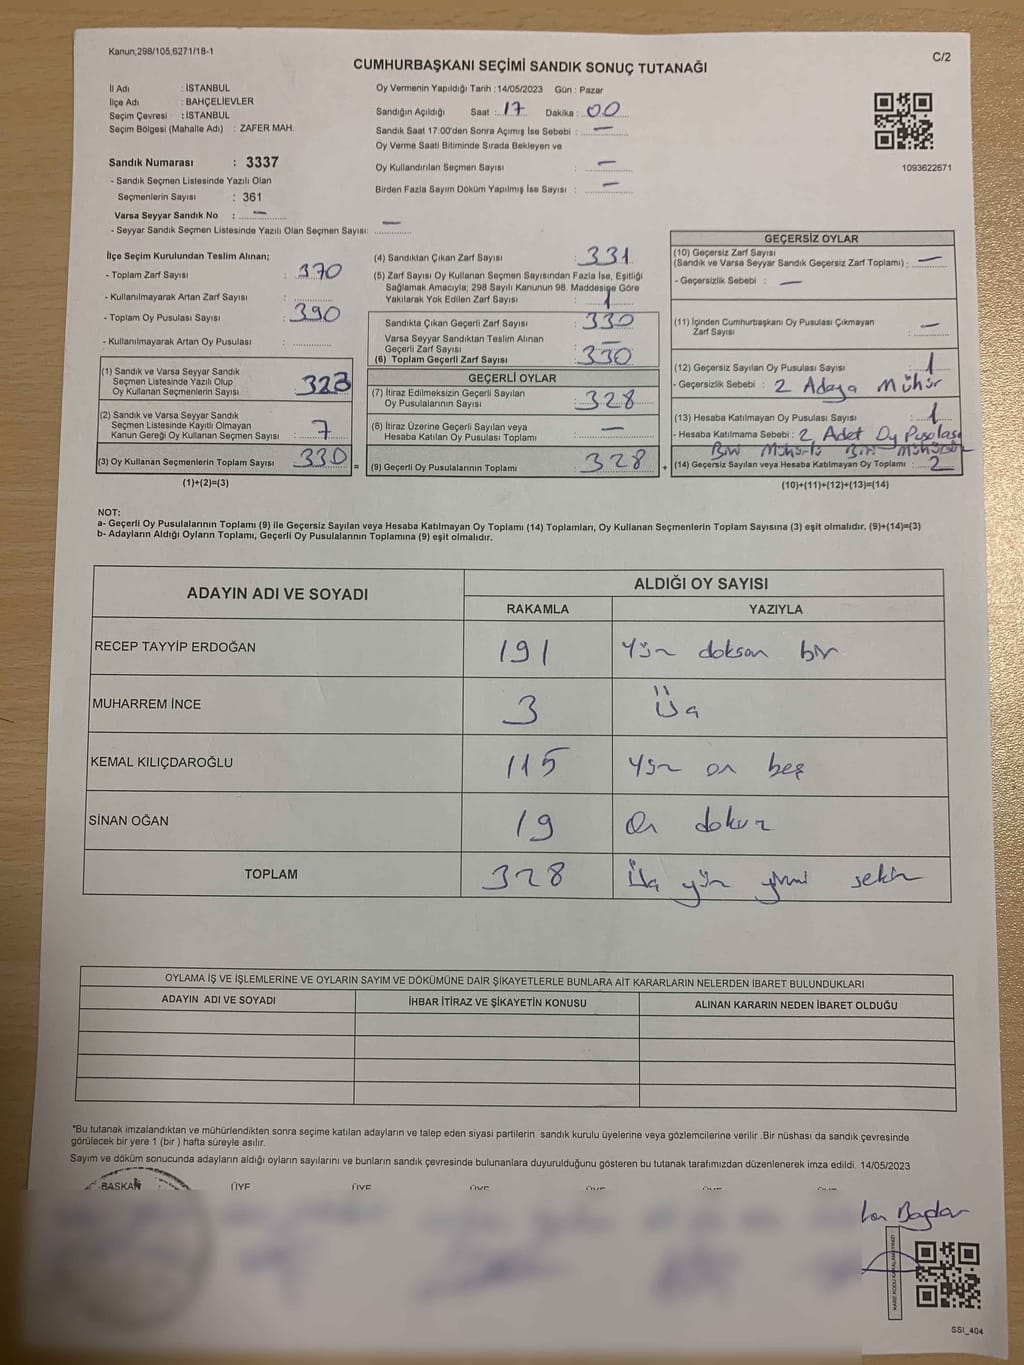 Kanun,298/105,6271/18-1
C/2
CUMHURBAŞKANI SEÇİMİ SANDIK SONUÇ TUTANAĞI
İl Adı : İSTANBUL
İlçe Adı : BAHÇELİEVLER
Seçim Çevresi : İSTANBUL
Seçim Bölgesi (Mahalle Adı) : ZAFER MAH.
Sandık Numarası : 3337
- Sandık Seçmen Listesinde Yazılı Olan
Seçmenlerin Sayısı : 361
Varsa Seyyar Sandık No : —
- Seyyar Sandık Seçmen Listesinde Yazılı Olan Seçmen Sayısı: —
Oy Vermenin Yapıldığı Tarih : 14/05/2023 Gün : Pazar
Sandığın Açıldığı Saat : 17 Dakika : 00
Sandık Saat 17:00'den Sonra Açımış İse Sebebi : —
Oy Verme Saati Bitiminde Sırada Bekleyen ve
Oy Kullandırılan Seçmen Sayısı : —
Birden Fazla Sayım Döküm Yapılmış İse Sayısı : —
1093622671
İlçe Seçim Kurulundan Teslim Alınan;
- Toplam Zarf Sayısı : 370
- Kullanılmayarak Artan Zarf Sayısı :
- Toplam Oy Pusulası Sayısı : 390
- Kullanılmayarak Artan Oy Pusulası :
(1) Sandık ve Varsa Seyyar Sandık
Seçmen Listesinde Yazılı Olup
Oy Kullanan Seçmenlerin Sayısı : 323
(2) Sandık ve Varsa Seyyar Sandık
Seçmen Listesinde Kayıtlı Olmayan
Kanun Gereği Oy Kullanan Seçmen Sayısı : 7
(3) Oy Kullanan Seçmenlerin Toplam Sayısı : 330
(1)+(2)=(3)
(4) Sandıktan Çıkan Zarf Sayısı : 331
(5) Zarf Sayısı Oy Kullanan Seçmen Sayısından Fazla İse, Eşitliği
Sağlamak Amacıyla; 298 Sayılı Kanunun 98. Maddesine Göre
Yakılarak Yok Edilen Zarf Sayısı : 1
Sandıkta Çıkan Geçerli Zarf Sayısı : 330
Varsa Seyyar Sandıktan Teslim Alınan
Geçerli Zarf Sayısı : —
(6) Toplam Geçerli Zarf Sayısı : 330
GEÇERLİ OYLAR
(7) İtiraz Edilmeksizin Geçerli Sayılan
Oy Pusulalarının Sayısı : 328
(8) İtiraz Üzerine Geçerli Sayılan veya
Hesaba Katılan Oy Pusulası Toplamı : —
= (9) Geçerli Oy Pusulalarının Toplamı : 328 +
GEÇERSİZ OYLAR
(10) Geçersiz Zarf Sayısı
(Sandık ve Varsa Seyyar Sandık Geçersiz Zarf Toplamı) : —
- Geçersizlik Sebebi : —
(11) İçinden Cumhurbaşkanı Oy Pusulası Çıkmayan
Zarf Sayısı : —
(12) Geçersiz Sayılan Oy Pusulası Sayısı : 1
- Geçersizlik Sebebi : 2 Adaya Mühür
(13) Hesaba Katılmayan Oy Pusulası Sayısı : 1
- Hesaba Katılmama Sebebi : 2 Adet Oy Pusulası
Biri Mühürlü Biri Mühürsüz
(14) Geçersiz Sayılan veya Hesaba Katılmayan Oy Toplamı : 2
(10)+(11)+(12)+(13)=(14)
NOT:
a- Geçerli Oy Pusulalarının Toplamı (9) ile Geçersiz Sayılan veya Hesaba Katılmayan Oy Toplamı (14) Toplamları, Oy Kullanan Seçmenlerin Toplam Sayısına (3) eşit olmalıdır. (9)+(14)=(3)
b- Adayların Aldığı Oyların Toplamı, Geçerli Oy Pusulalarının Toplamına (9) eşit olmalıdır.
ADAYIN ADI VE SOYADI ALDIĞI OY SAYISI
RAKAMLA YAZIYLA
RECEP TAYYİP ERDOĞAN 191 Yüz doksan bir
MUHARREM İNCE 3 Üç
KEMAL KILIÇDAROĞLU 115 Yüz on beş
SİNAN OĞAN 19 On dokuz
TOPLAM 328 Üç yüz yirmi sekiz
OYLAMA İŞ VE İŞLEMLERİNE VE OYLARIN SAYIM VE DÖKÜMÜNE DAİR ŞİKAYETLERLE BUNLARA AİT KARARLARIN NELERDEN İBARET BULUNDUKLARI
ADAYIN ADI VE SOYADI İHBAR İTİRAZ VE ŞİKAYETİN KONUSU ALINAN KARARIN NEDEN İBARET OLDUĞU
*Bu tutanak imzalandıktan ve mühürlendikten sonra seçime katılan adayların ve talep eden siyasi partilerin sandık kurulu üyelerine veya gözlemcilerine verilir .Bir nüshası da sandık çevresinde
görülecek bir yere 1 (bir ) hafta süreyle asılır.
Sayım ve döküm sonucunda adayların aldığı oyların sayılarını ve bunların sandık çevresinde bulunanlara duyurulduğunu gösteren bu tutanak tarafımızdan düzenlenerek imza edildi. 14/05/2023
BAŞKAN ÜYE ÜYE ÜYE ÜYE
SSI_404